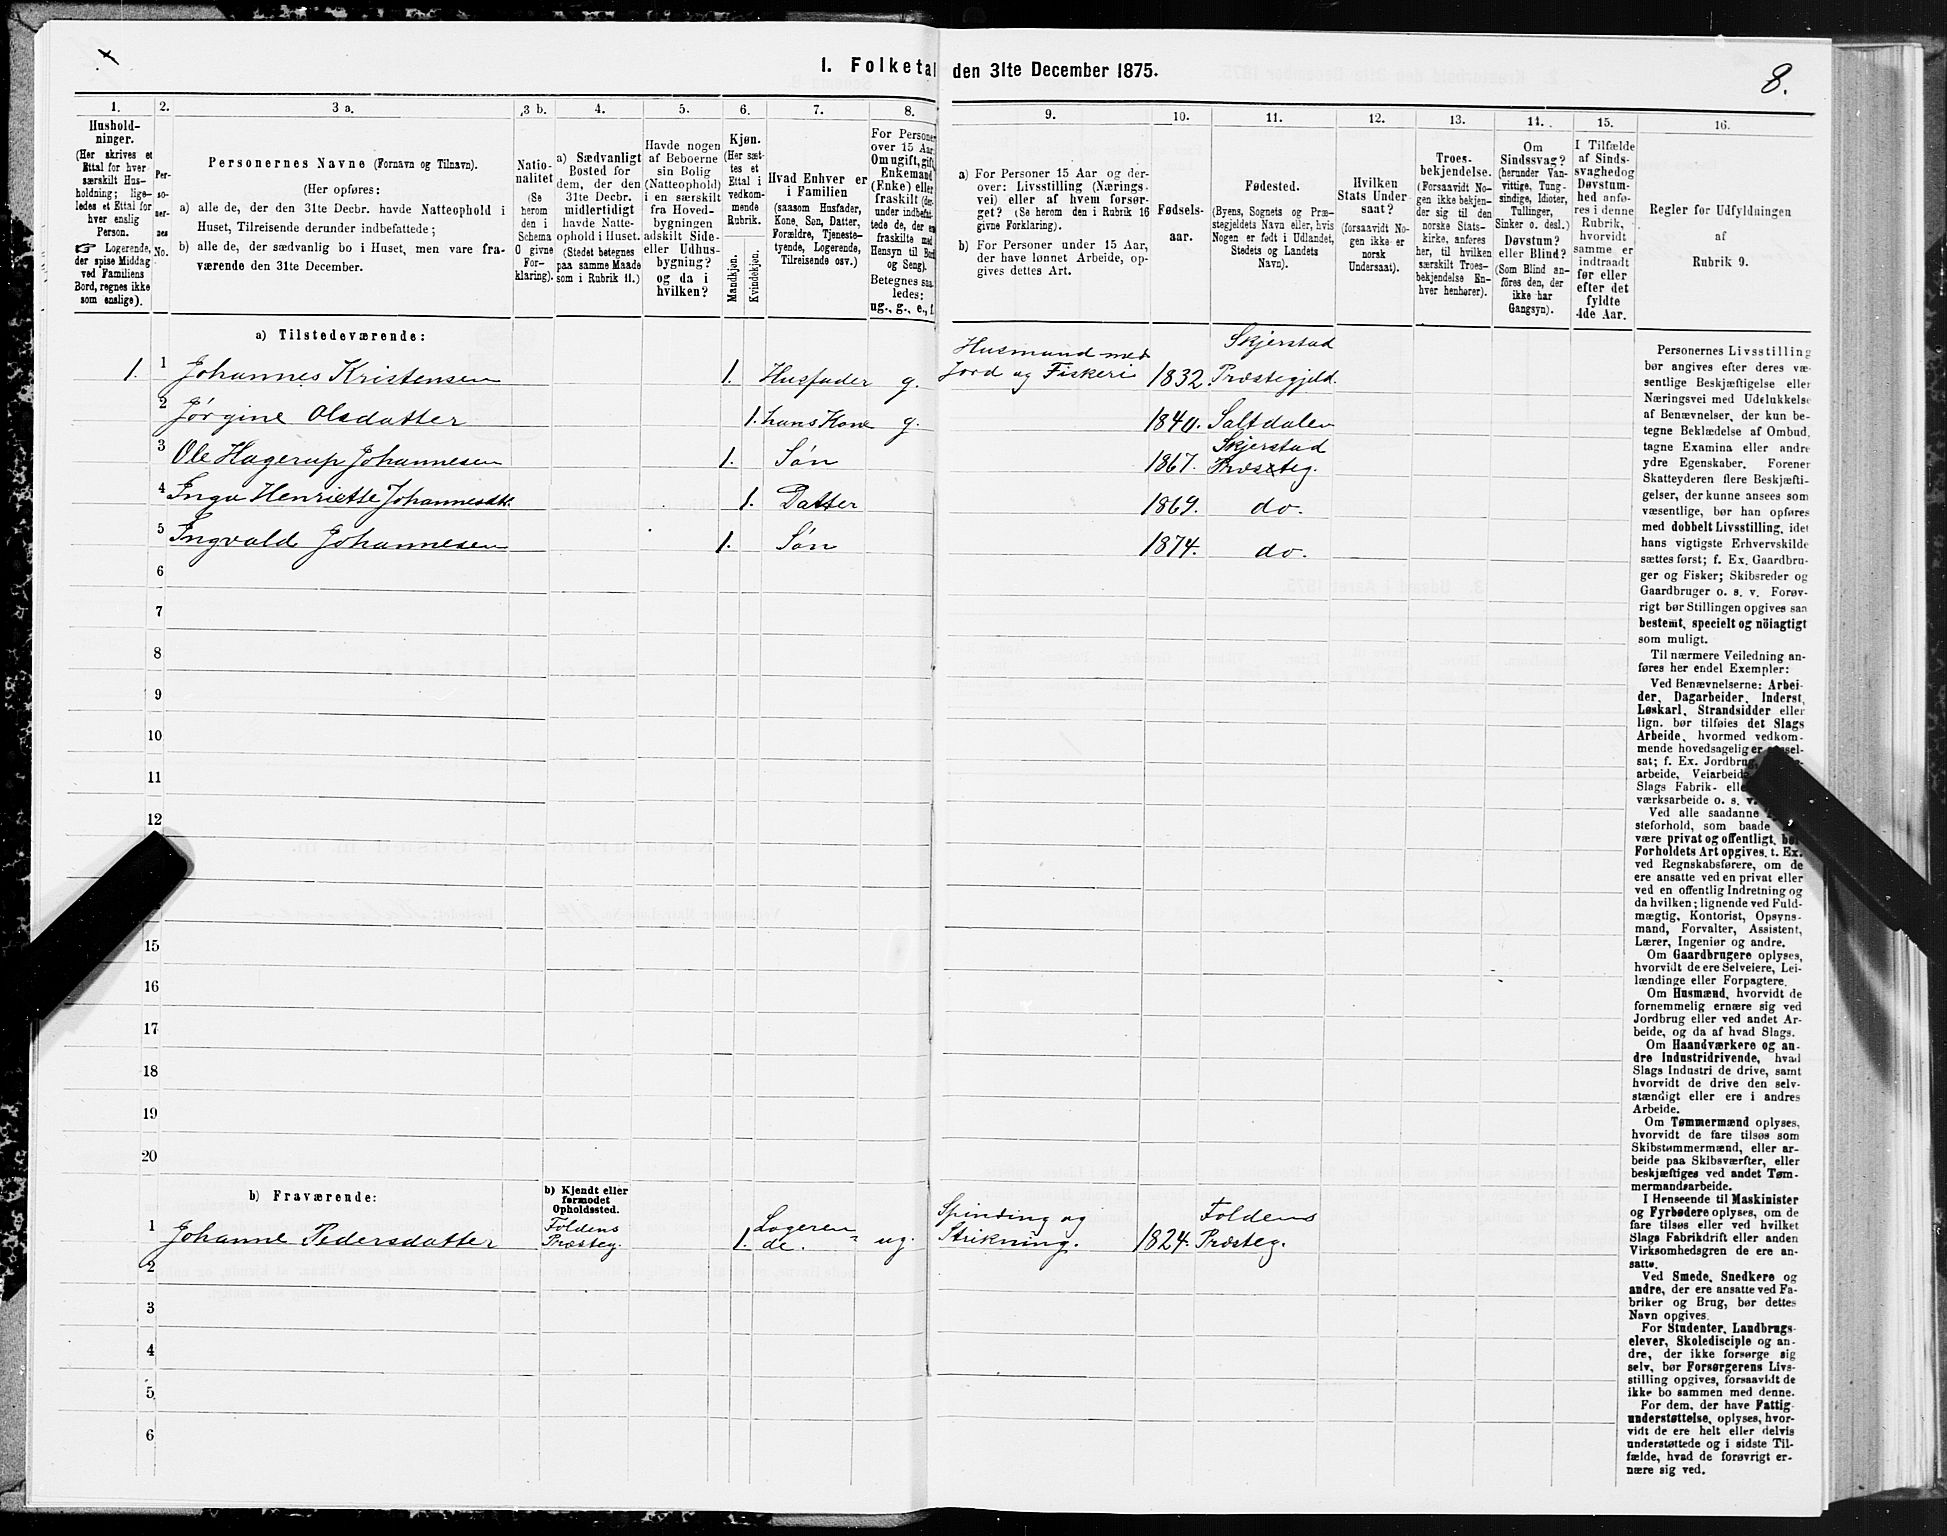 1. Folketal den 31te December 1875.
8.
1. 2. 3 a. 3 b. 4. 5. 6. 7. 8. 9. 10. 11. 12. 13. 14. 15. 16.
Hushold-
ninger.
(Her skrives et
Ettal for hver
særskilt Hus-
holdning; lige-
ledes et Ettal for
hver enslig
Person.
☞ Logerende,
der spise Middag
ved Familiens
Bord, regnes ikke
som enslige).
Per-
so-
ner-
nes
No.
Personernes Navne (Fornavn og Tilnavn).
(Her opføres:
a) alle de, der den 31te Decbr. havde Natteophold i
Huset, Tilreisende derunder indbefattede;
b) alle de, der sædvanlig bo i Huset, men vare fra-
værende den 31te December.
Natio-
nalitet
(Se
herom
den i
Schema
O givne
For-
klaring).
a) Sædvanligt
Bosted for
dem, der den
31te Decbr.
midlertidigt
havde Natte-
ophold i Huset.
(Stedet betegnes
paa samme Maade
som i Rubrik 11.)
Havde nogen
af Beboerne
sin Bolig
(Natteophold)
i en særskilt
fra Hoved-
bygningen
adskilt Side-
eller Udhus-
bygning?
og da i
hvilken?
Kjøn.
(Her sæt-
tes et
Ettal i
vedkom-
mende
Rubrik.
Mandkjøn.
Kvindekjøn.
Hvad Enhver er
i Familien
(saasom Husfader,
Kone, Søn, Datter,
Forældre, Tjeneste-
tyende, Logerende,
Tilreisende osv.)
For Personer
over 15 Aar:
Om ugift, gift,
Enkemand
(Enke) eller
fraskilt (der-
under indbefat-
tede de, der ere
fraskilte med
Hensyn til Bord
og Seng).
Betegnes saa-
ledes:
ug., g., e., f.
a) For Personer 15 Aar og der-
over: Livsstilling (Nærings-
vei) eller af hvem forsør-
get? (Se herom den i Rubrik 16
givne Forklaring).
b) For Personer under 15 Aar,
der have lønnet Arbeide, op-
gives dettes Art.
Fødsels-
aar.
Fødested.
(Byens, Sognets og Præ-
stegjeldets Navn eller, hvis
Nogen er født i Udlandet,
Stedets og Landets
Navn).
Hvilken
Stats Under-
saat?
(forsaavidt No-
gen ikke er
norsk
Undersaat).
Troes-
bekjendelse.
(Forsaavidt No-
gen ikke bekjen-
der sig til den
norske Stats-
kirke, anføres
her, til hvilken
særskilt Troes-
bekjendelse En-
hver henhører).
Om
Sindssvag?
(herunder Van-
vittige, Tung-
sindige, Idioter,
Tullinger,
Sinker o. desl.)
Døvstum?
eller Blind?
(Som Blind an-
føres den, der
ikke har
Gangsyn).
I Tilfælde
af Sinds-
svaghed og
Døvstum-
hed anfø-
res i denne
Rubrik,
hvorvidt
samme er
indtraadt
før eller
efter det
fyldte
4de Aar.
Regler for Udfyldningen
af
Rubrik 9.
a) Tilstedeværende:
Husmand med Skjerstad
1. 1 Johannes Kristensen 1. Husfader g. Jord og Fiskeri 1832. Præstegjeld.
2 Jørgine Olsdatter 1. hans Kone g. 1840. Saltdalen
Skjerstad
3 Ole Hagerup Johannesen 1. Søn 1867. Præsteg.
4 Inga Henriette Johannesdtr. 1. Datter 1869. do.
5 Ingvald Johannesen 1. Søn 1874. do.
6
7
8
9
10
11
12
15
16
17
18
19
20
b) Fraværende:
b) Kjendt eller
formodet
Opholdssted.
Foldens Logeren- Spinding og Foldens
1 Johanne Pedersdatter Præsteg. 1. de. ug. Strikning. 1824. Præsteg.
2
3
4
5
6
Personernes Livsstilling
bør angives efter deres væ-
sentlige Beskjæftigelse eller
Næringsvei med Udelukkelse
af Benævnelser, der kun be-
tegne Beklædelse af Ombud,
tagne Examina eller andre
ydre Egenskaber. Forener
Skatteyderen flere Beskjæfti-
gelser, der kunne ansees som
væsentlige, bør han opføres
med dobbelt Livsstilling, idet
hans vigtigste Erhvervskilde
sættes først; f. Ex. Gaardbru-
ger og Fisker; Skibsreder og
Gaardbruger o. s. v. Forøv-
rigt bør Stillingen opgives saa
bestemt, specielt og nöiagtigt
som muligt.
Til nærmere Veiledning an-
føres her endel Exempler:
Ved Benævnelserne: Arbei-
der, Dagarbeider, Inderst,
Løskarl, Strandsidder eller
lign. bør tilføies det Slags
Arbeide, hvormed vedkom-
mende hovedsagelig er syssel-
sat; f. Ex. Jordbrug,
arbeide, Veiarbeide
Slags Fabrik- eller
værksarbeide o. s. v.
Ved alle saadanne
steforhold, som baade
være privat og offentligt, bør
Forholdets Art opgives, t. Ex.
ved Regnskabsførere, om de
ere ansatte ved en privat eller
ved en offentlig Indretning og
da hvilken; lignende ved Fuld-
mægtig, Kontorist, Opsyns-
mand, Forvalter, Assistent,
Lærer, Ingeniør og andre.
Om Gaardbrugere oplyses,
hvorvidt de ere Selveiere, Lei-
lændinge eller Forpagtere.
Om Husmænd, hvorvidt de
fornemmelig ernære sig ved
Jordbrug eller ved andet Ar-
beide, og da af hvad Slags.
Om Haandværkere og an-
dre Industridrivende, hvad
Slags Industri de drive, samt
hvorvidt de drive den selv-
stændigt eller ere i andres
Arbeide.
Om Tømmermænd oplyses,
hvorvidt de fare tilsøs som
Skibstømmermænd, eller ar-
beide paa Skibsværfter, eller
beskjæftiges ved andet Tøm-
mermandsarbeide.
I Henseende til Maskinister
og Fyrbødere oplyses, om de
fare tilsøs eller ved hvilket
Slags Fabrikdrift eller anden
Virksomhedsgren de ere an-
satte.
Ved Smede, Snedkere og
andre, der ere ansatte ved Fa-
briker og Brug, bør dettes
Navn opgives.
For Studenter, Landbrugs-
elever, Skoledisciple og an-
dre, der ikke forsørge sig
selv, bør Forsørgerens Livs-
stilling opgives, forsaavidt de
ikke bo sammen med denne.
For dem, der have Fattig-
understøttelse, oplyses, hvor-
vidt de ere helt eller delvis
understøttede og i sidste Til-
fælde, hvad de forøvrigt er-
nære sig ved.